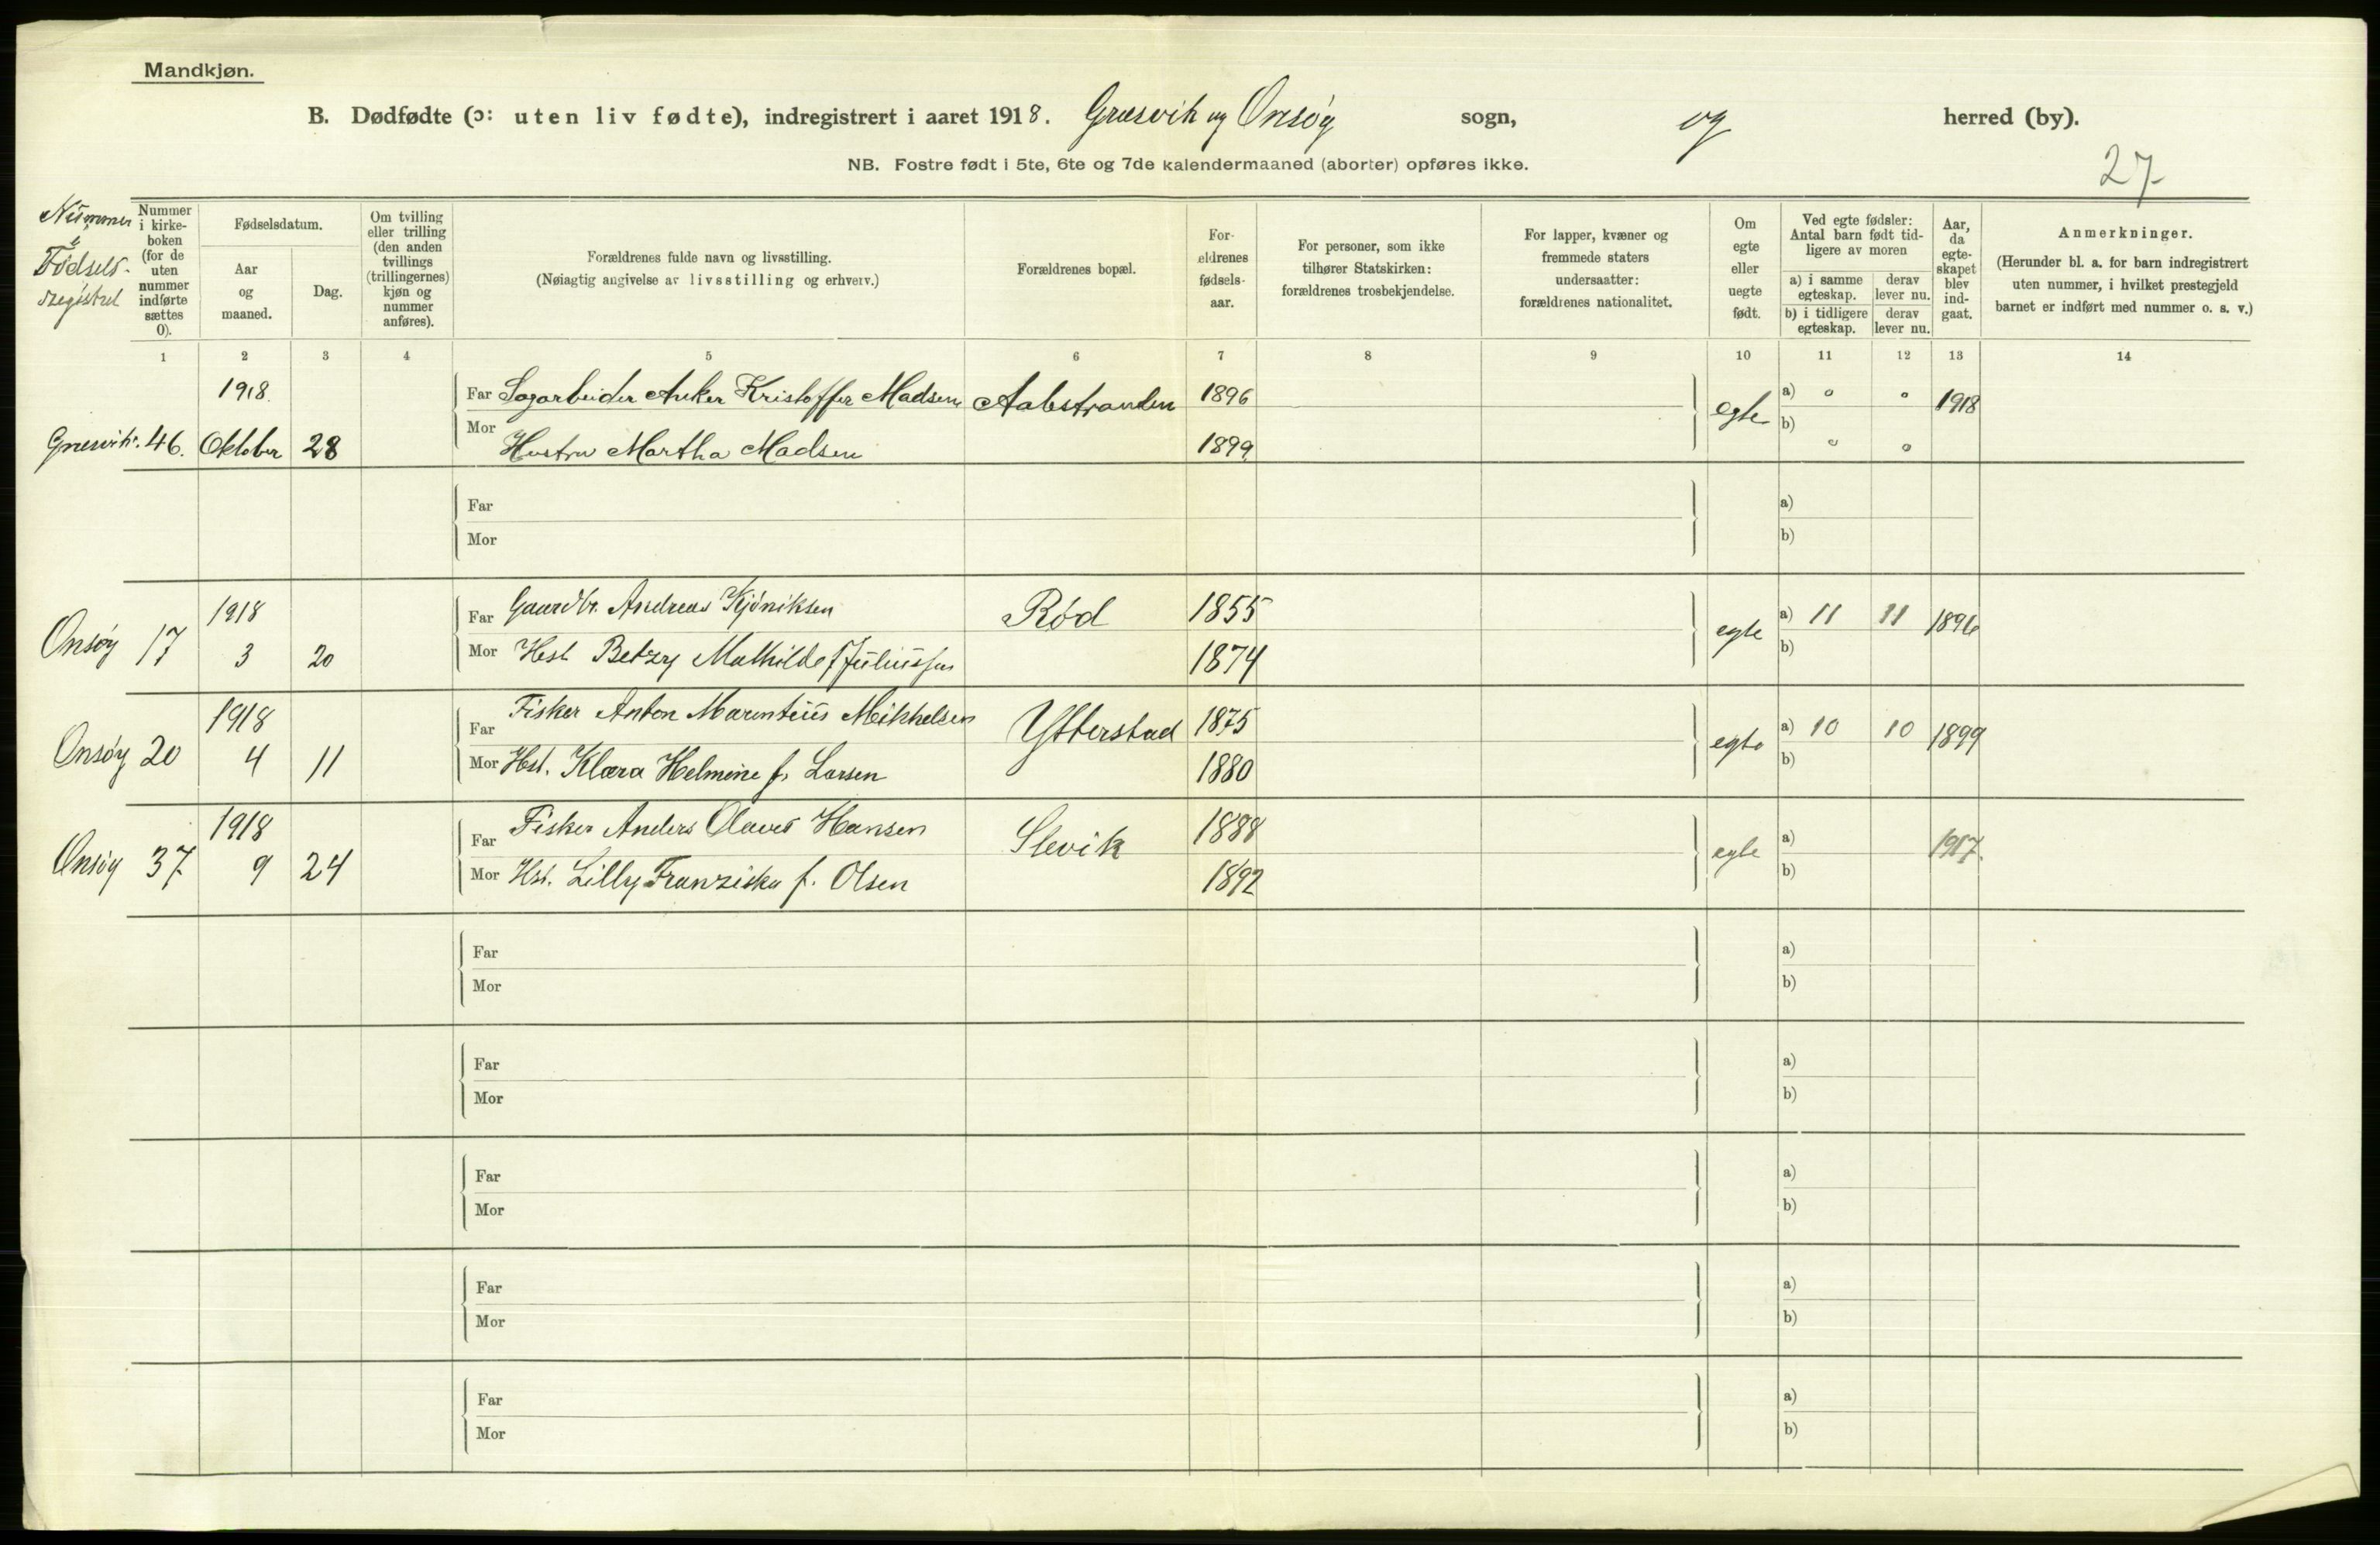 Mandkjøn.
B. Dødfødte (ɔ: uten liv fødte), indregistrert i aaret 1918. Græsvik og Onsøy sogn, og herred (by).
NB. Fostre født i 5te, 6te og 7de kalendermaaned (aborter) opføres ikke.
27
Nummer i Fødselsregistret
Nummer i kirkeboken (for de uten nummer indførte sættes 0).
Fødselsdatum.
Aar og maaned.
Dag.
Om tvilling eller trilling (den anden tvillings (trillingernes) kjøn og nummer anføres).
Forældrenes fulde navn og livsstilling.
(Nøiagtig angivelse av livsstilling og erhverv.)
Forældrenes bopæl.
Forældrenes fødselsaar.
For personer, som ikke tilhører Statskirken: forældrenes trosbekjendelse.
For lapper, kvæner og fremmede staters undersaatter: forældrenes nationalitet.
Om egte eller uegte født.
Ved egte fødsler: Antal barn født tidligere av moren
a) i samme egteskap. derav lever nu.
b) i tidligere egteskap. derav lever nu.
Aar, da egteskapet blev indgaat.
Anmerkninger.
(Herunder bl. a. for barn indregistrert uten nummer, i hvilket prestegjeld barnet er indført med nummer o. s. v.)
1 2 3 4 5 6 7 8 9 10 11 12 13 14
1918. Far Sagarbeider Anker Kristoffer Madsen Aalestranden 1896 egte a) 0 0 1918
Græsvik. 46. Oktober 28 Mor Hustru Martha Madsen 1899 b) 0 0
Far a)
Mor b)
1918 Far Gaardbr. Andreas Kjöniksen Rød 1855 egte a) 11 11 1896
Onsøy 17 3 20 Mor Hst Betzy Mathilde f Juliussen 1874 b)
1918 Far Fisker Anton Marentius Mikkelsen Ytterstad 1875 egte a) 10 10 1899
Onsøy 20 4 11 Mor Hst. Klara Helmine f. Larsen 1880 b)
1918 Far Fisker Anders Olaves Hansen Slevik 1888 egte a) 1917.
Onsøy 37 9 24 Mor Hst. Lilly Franziska f. Olsen 1892 b)
Far a)
Mor b)
Far a)
Mor b)
Far a)
Mor b)
Far a)
Mor b)
Far a)
Mor b)